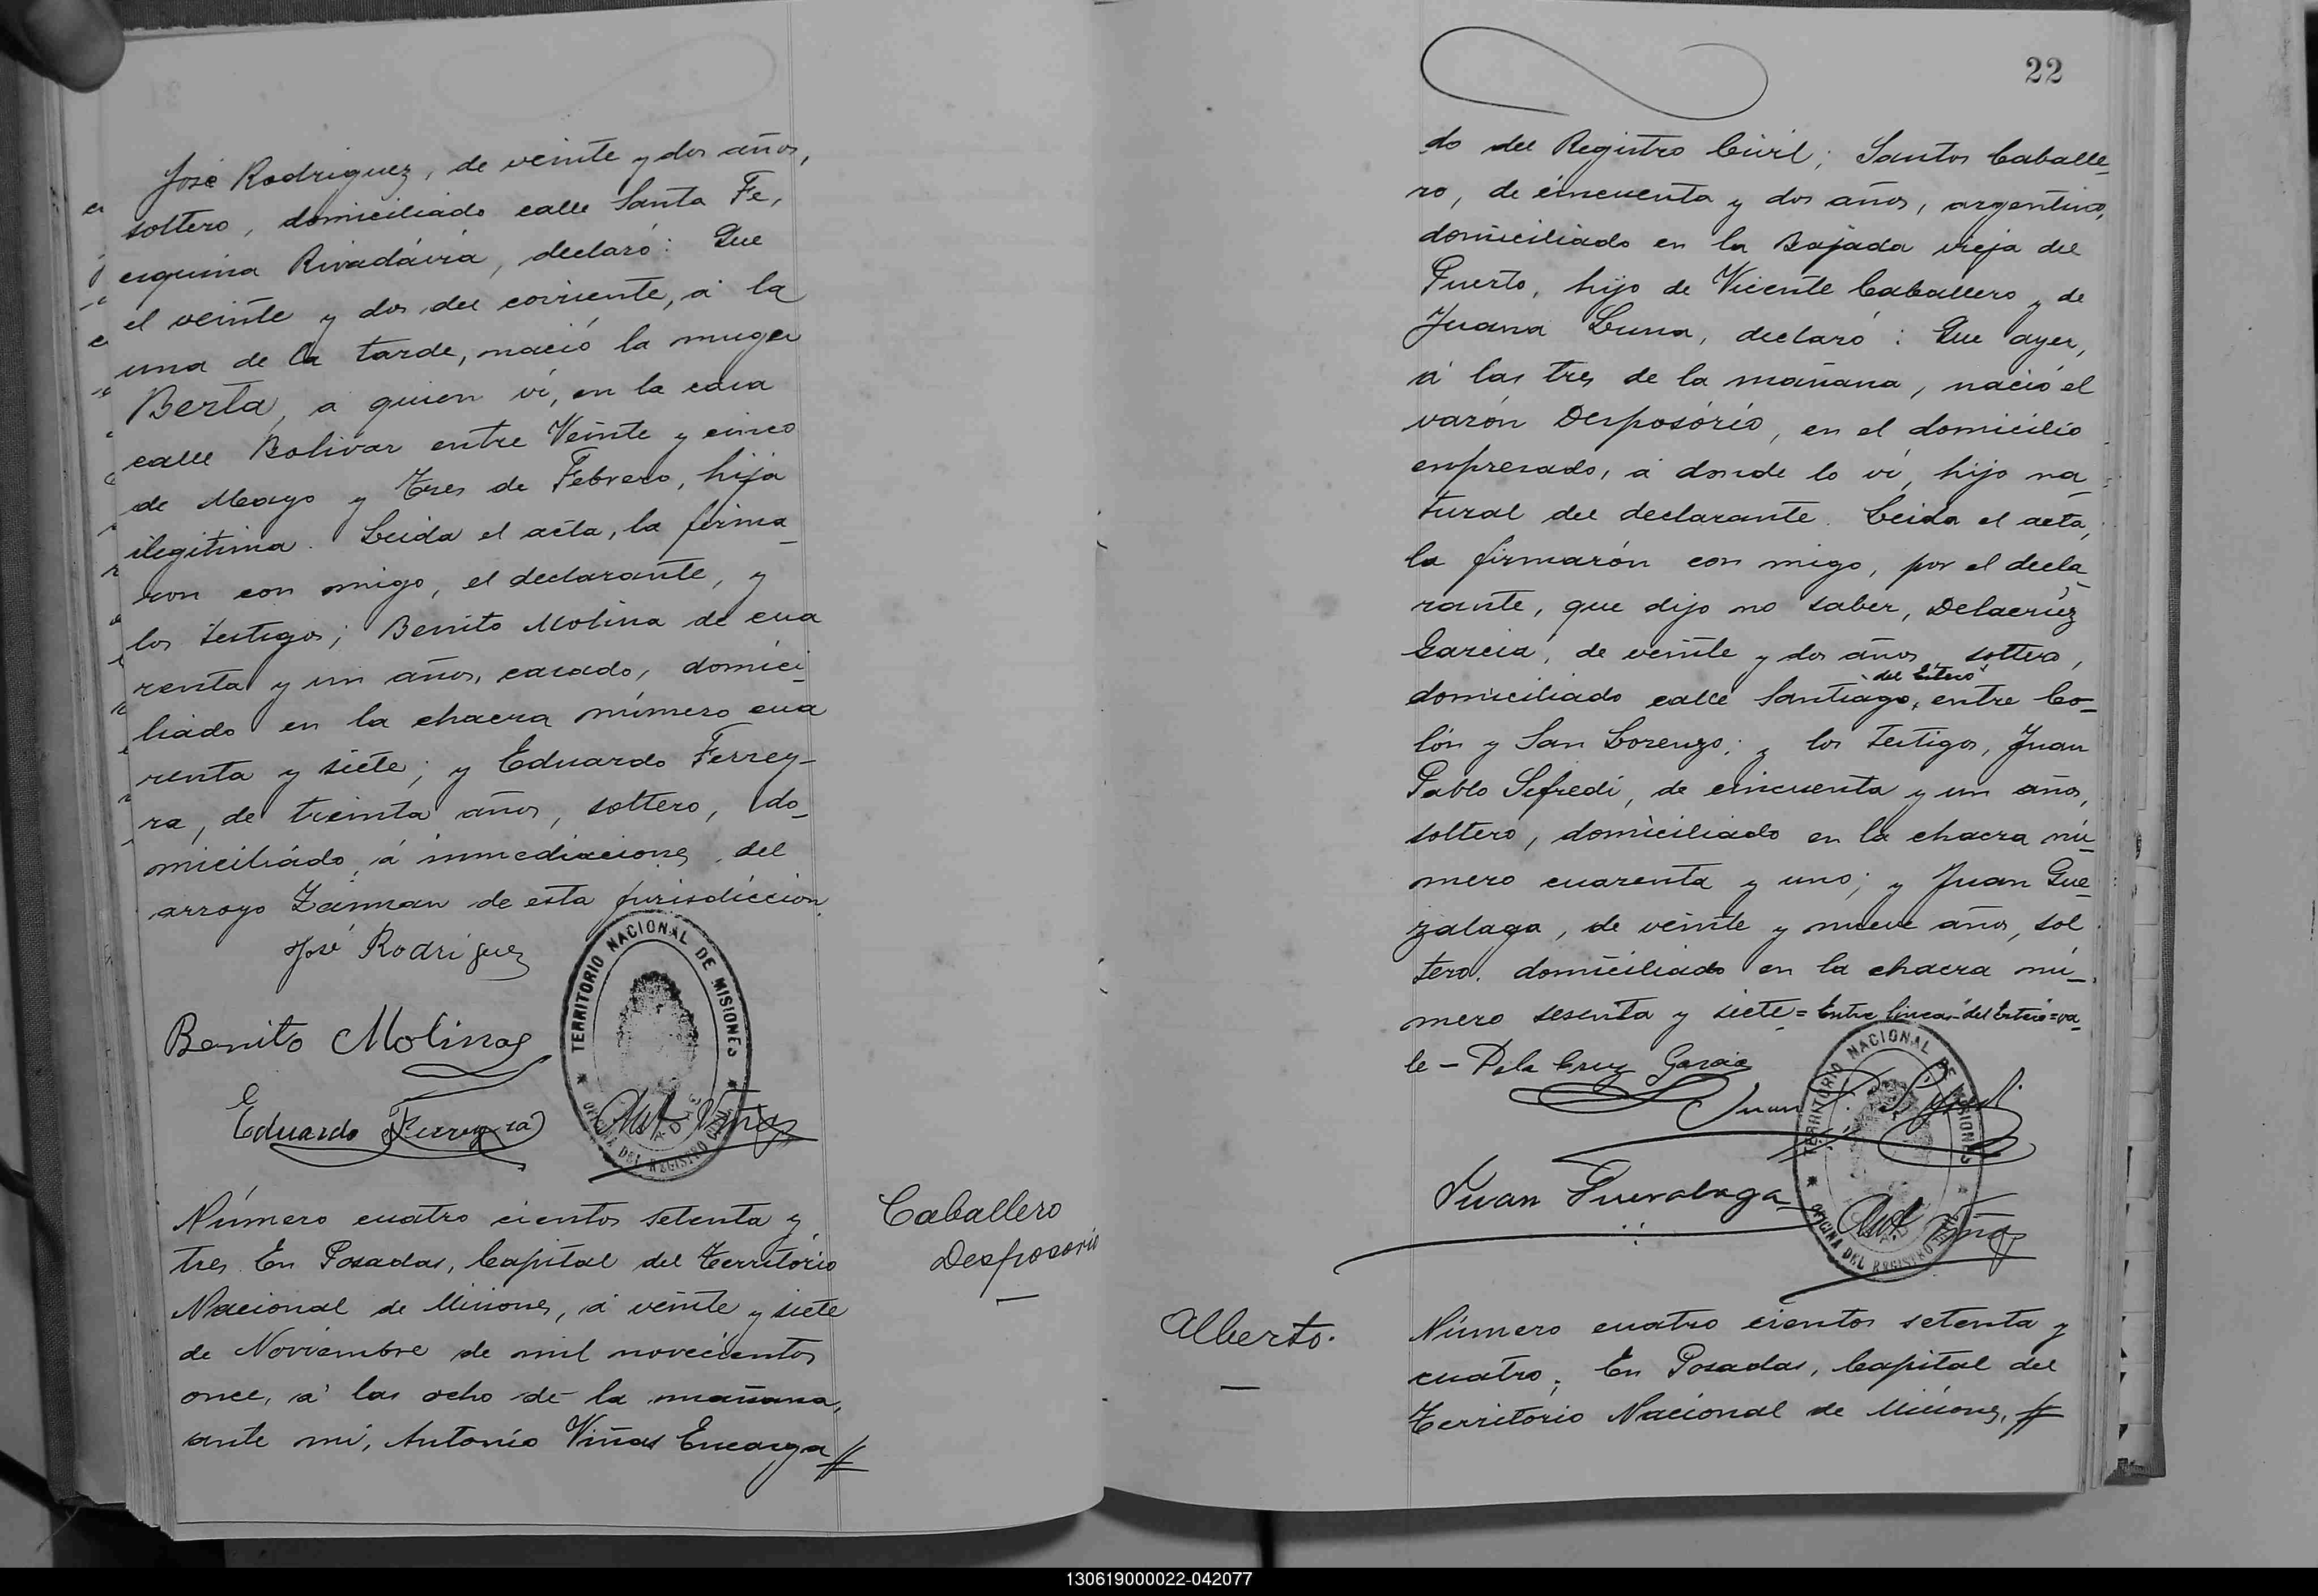 José Rodriguez, de veinte y dos años,
soltero, domiciliado calle Santa Fe,
esquina Rivadávia, declaró: Que
el veinte y dos del corriente, á la
una de la tarde, nació la muger
Berta, a quien ví, en la casa
calle Bolivar entre Veinte y cinco
de Mayo y Tres de Febrero, hija
ilegitima. Leida el acta, la firma_
ron con migo, el declarante, y
los testigos; Benito Molina de cua
renta y un años, casado, domici_
liado en la chacra número cua
renta y siete; y Eduardo Ferrey_
ra, de treinta años, soltero, do_
miciliádo, á inmediaciones del
arroyo Zaiman de esta jurisdiccion.
José Rodriguez
Benito Molinas
Eduardo Ferreyra
Ant Viñas
TERRITORIO NACIONAL DE MISIONES
OFICINA DEL REGISTRO CIVIL
Número cuatro cientos setenta y
tres. En Posadas, Capital del Território
Nacional de Misiones, á veinte y siete
de Noviembre de mil novecientos
once, a' las ocho de la mañana,
ante mi, Antonio Viñas Encarga
Caballero
Desposorio
22
do del Registro Civil; Santos Caballe_
ro, de cincuenta y dos años, argentino,
domiciliado en la Bajada vieja del
Puerto, hijo de Vicente Caballero y de
Juana Luna, declaró: Que ayer,
á las tres de la mañana, nació el
varón Desposório, en el domicilio
enpresado, á donde lo ví, hijo na_
tural del declarante. Leida el acta,
la firmarón con migo, por el decla_
rante, que dijo no saber, Delacruz
Garcia, de veinte y dos años, soltero,
del Estero
domiciliado calle Santiago, entre Co_
lón y San Lorenzo; y los testigos, Juan
Pablo Sifredi, de cincuenta y un años,
soltero, domiciliado en la chacra nú_
mero cuarenta y uno; y Juan Gue
zalaga, de veinte y nueve años, sol
tero. domiciliado en la chacra nú_
mero sesenta y siete = Entre lineas-del Estero=va_
le - De la Cruz Garcia
Juan P. Sifredi
Juan Guezalaga
Ant Viñas
TERRITORIO NACIONAL DE MISIONES
OFICINA DEL REGISTRO CIVIL
Alberto.
Número cuatro cientos setenta y
cuatro; En Posadas, Capital del
Território Nacional de Misiones,
130619000022-042077